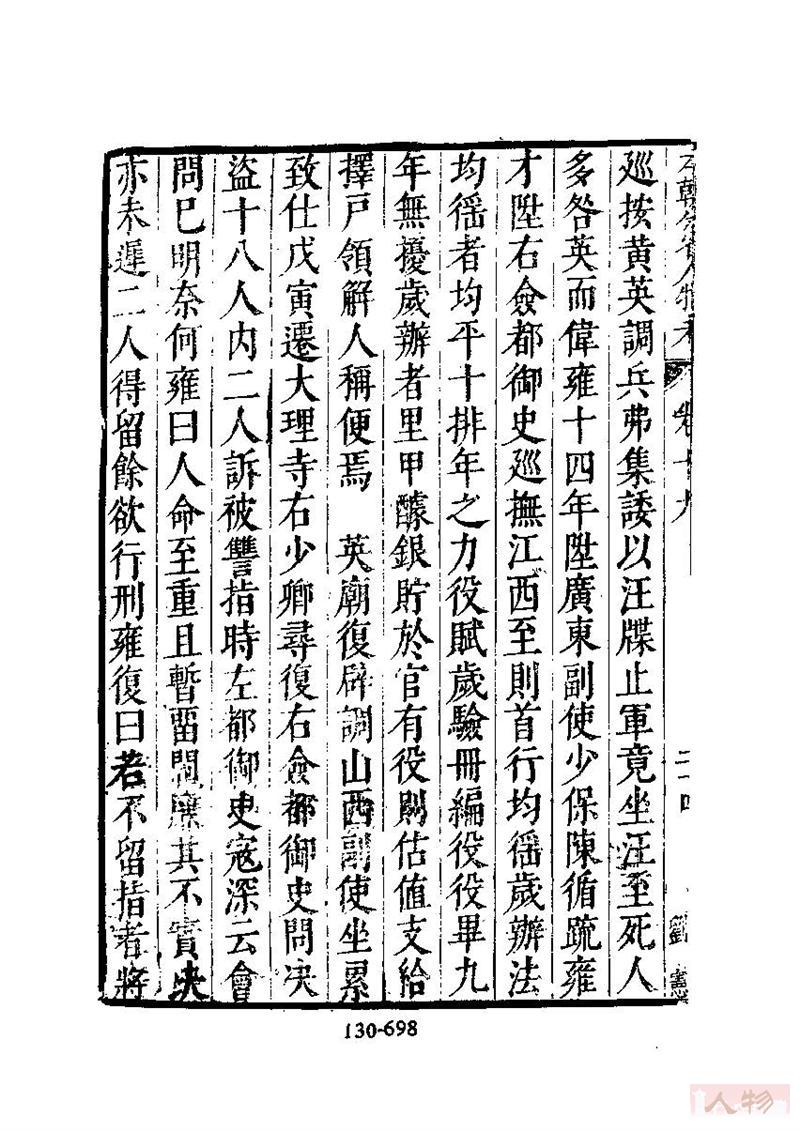 巡按黃英調兵弗集諉以汪牒止軍竟坐汪至死人
多咎英而偉雍十四年陞廣東副使少保陳循䟽雍
才陞右僉都御史廵撫江西至則首行均徭歲辦法
均徭者均平十排年之力役賦歲驗冊編役役畢九
年無擾歲辦者里甲醵銀貯於官有役則估值支給
擇戶領解人稱便焉　英廟復辟調山西副使坐累
致仕戊寅遷大理寺右少卿尋復右僉都御史問决
盜十八人内二人訴被讐指時左都御史寇深云會
問巳明奈何雍曰人命至重且暫畱間廉其不實决
亦未遲二人得留餘欲行刑雍復曰若不留指者將
人物
卷十九
二十四
130-698
人物